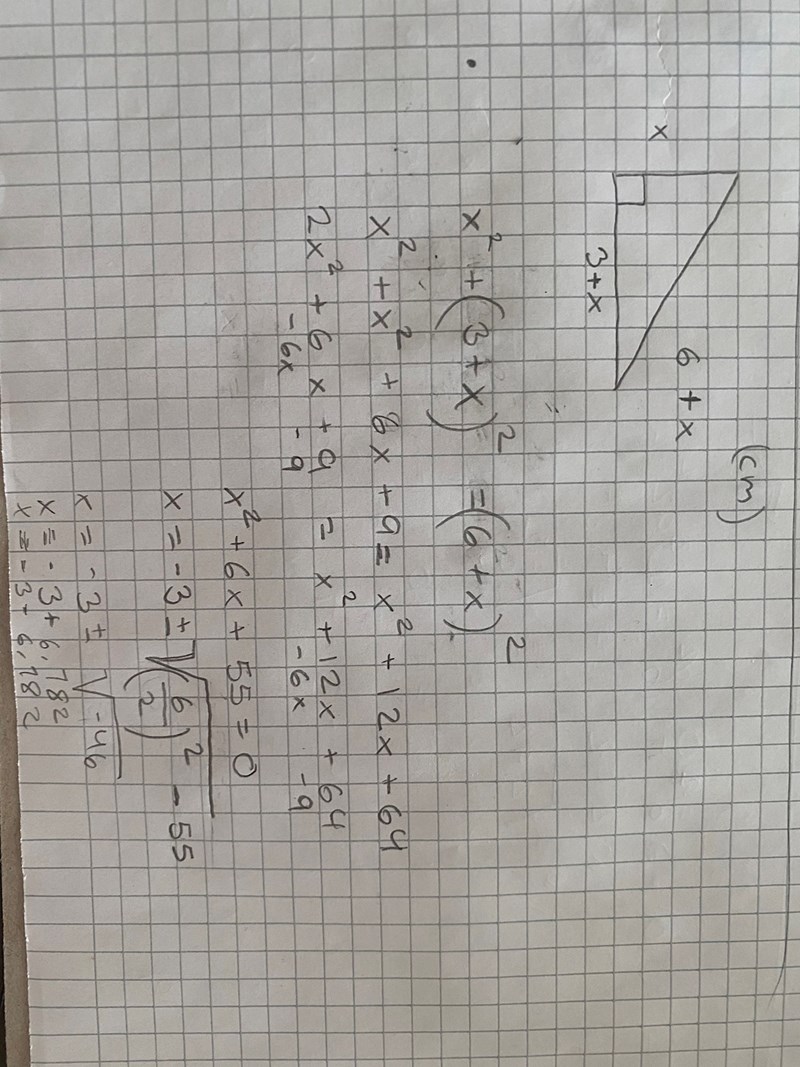 (cm)
6 + x
x
3 + x
x² + (3 + x)² = (6 + x)²
x² + x² + 6x + 9 = x² + 12x + 64
2x² + 6x + 9 = x² + 12x + 64
-6x -9 -6x -9
x² + 6x + 55 = 0
x = -3 ± √(6/2)² - 55
x = -3 ± √-46
x = -3 + 6,782
x = -3 - 6,782